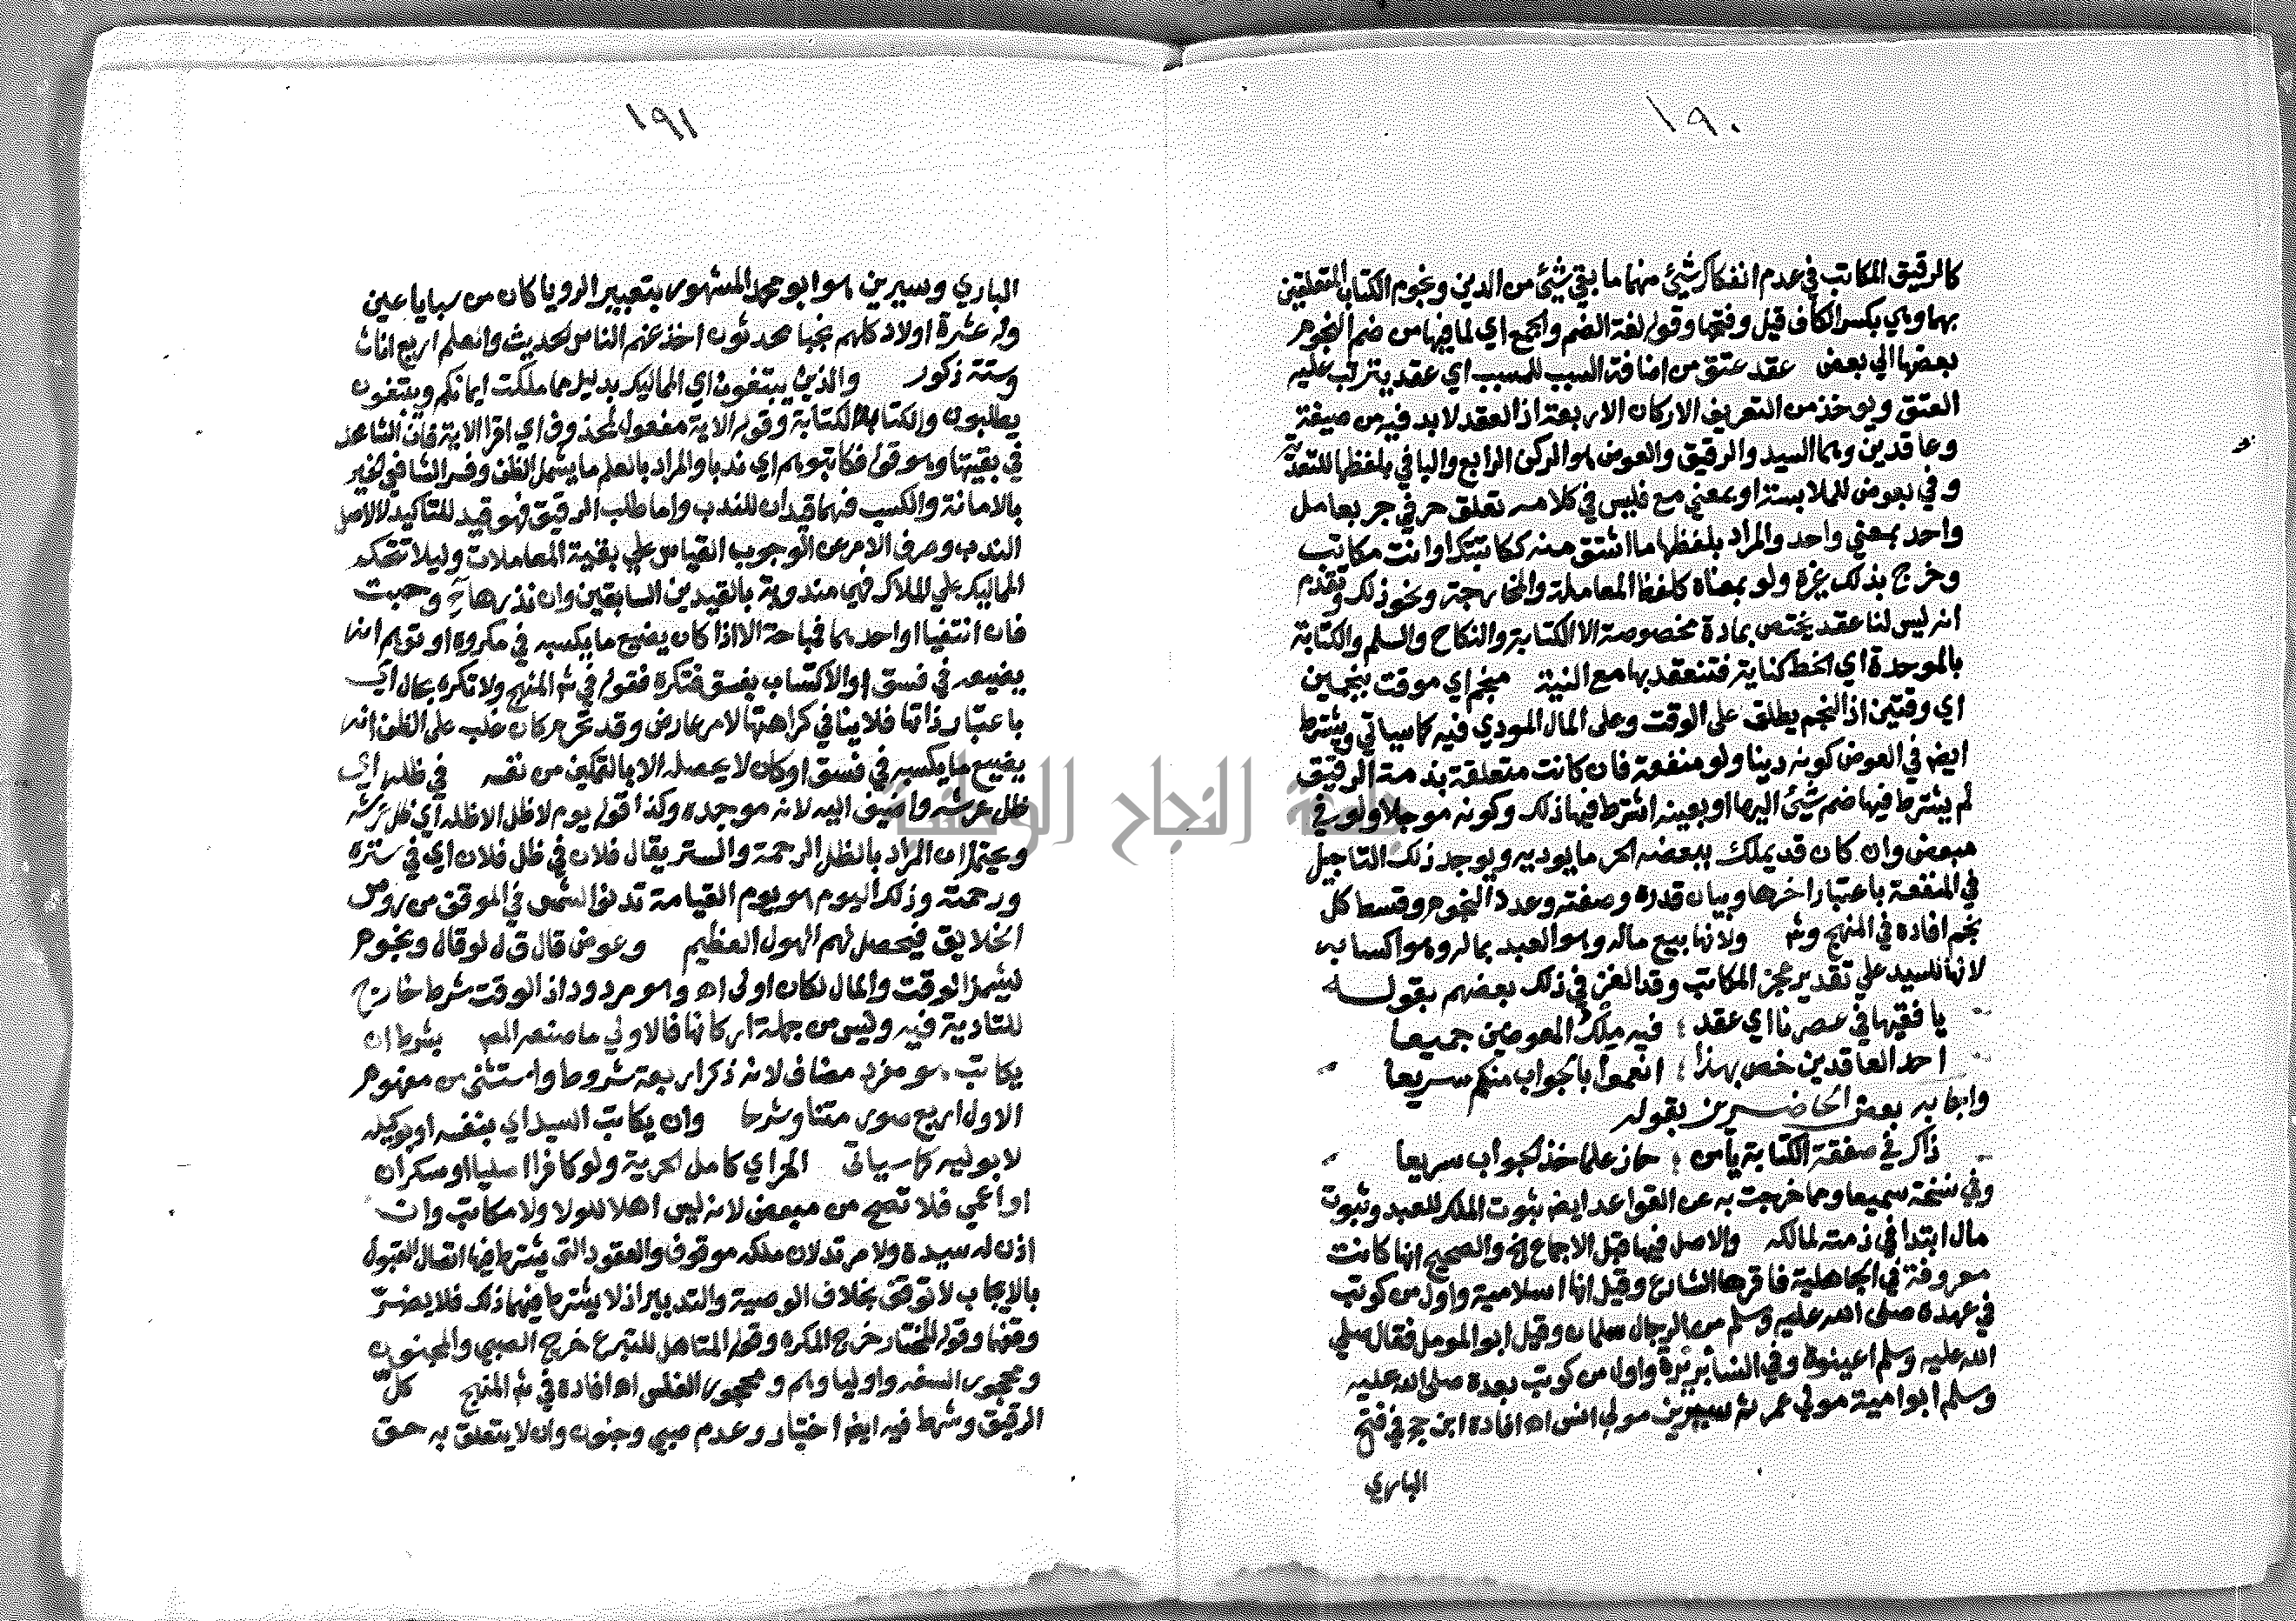 ١٩٠
كالرقيق المكاتب في عدم انفكاك شيئ منهما ما بقي شيئ من الدين ونجوم الكتاب المتعلقين
بها وهي بكسر الكاف قيل وفتحها وقوله لغة الضم والجمع اي لما فيها من ضم النجوم
بعضها الي بعض عقد عتق من اضافة السبب للمسبب اي عقد يترتب عليه
العتق ويوخذ من التعريف الاركان الاربعة اذ العقد لا بد فيه من صيغة
وعاقدين وهما السيد والرقيق والعوض هو الركن الرابع والبا في بلفظها للتعدية
وفي بعوض للملابسة او بمعني مع فليس في كلامه تعلق حرفي جر بعامل
واحد بمعني واحد والمراد بلفظها ما اشتق منه ككاتبتك او انت مكاتب
وخرج بذلك غيره ولو بمعناه كلفظ المعاملة والمخارجة ونحو ذلك وتقدم
انه ليس لنا عقد يختص بمادة مخصوصة الا الكتابة والنكاح والسلم والكتابة
بالموحدة اي الخط كناية فتنعقد بها مع النية منجم اي موقت بنجمين
اي وقتين اذ النجم يطلق على الوقت وعلى المال المودي فيه كما سياتي ويشترط
ايض في العوض كونه دينا ولو منفعة فان كانت متعلقة بذمة الرقيق
لم يشترط فيها ضم شيئ اليها او بعينه اشترط فيها ذلك وكونه موجلا ولو في
مبعض وان كان قد يملك ببعضه الحر ما يوديه ويوجد ذلك التاجيل
في المنفعة باعتبار اخرها وبيان قدره وصفته وعدد النجوم وقسط كل
نجم افاده في المنهج وش ولانها بيع ماله وهو العبد بماله وهو اكسابه
لانها للسيد علي تقدير عجز المكاتب وقد الغز في ذلك بعضهم بقوله
يا فقيها في عصرنا اي عقد ؛ فيه ملك العوضين جميعا
احد العاقدين خص بهذا ؛ انعموا بالجواب منكم سريعا
واجابه بعض الحاضرين بقوله
ذاك في صفقة الكتابة يا من ؛ حاز علما خذ الجواب سريعا
وفي نسخة سميعا ومما خرجت به عن القواعد ايض ثبوت الملك للعبد وثبوت
مال ابتدا في ذمته لمالكه والاصل فيها قبل الاجماع الخ والصحيح انها كانت
معروفة في الجاهلية فاقرها الشارع وقيل انها اسلامية واول من كوتب
في عهده صلى الله عليه وسلم من الرجال سلمان وقيل ابو المومل فقال صلي
الله عليه وسلم اعينوه وفي النسا بريرة واول من كوتب بعده صلى الله عليه
وسلم ابو امية مولي عمر ثم سيرين مولي انس اه افاده ابن حجر في فتح
الباري
١٩١
الباري وسيرين هو ابو محمد المشهور بتعبير الرويا كان من سبايا عين
وله عشرة اولاد كلهم نجبا محدثون اخذ عنهم الناس الحديث والعلم اربع اناث
وستة ذكور والذين يبتغون اي المماليك بدليل مما ملكت ايمانكم ويبتغون
يطلبون والكتاب الكتابة وقوله الاية مفعول لمحذوف اي اقرا الاية فان الشاهد
في بقيتها وهو قوله فكاتبوهم اي ندبا والمراد بالعلم ما يشمل الظن وفسر الشافعي الخير
بالامانة والكسب فهما قيدان للندب واما طلب الرقيق فهو قيد للتاكيد لا لاصل
الندب وصرف الامر عن الوجوب القياس علي بقية المعاملات وليلا تتحكم
المماليك علي الملاك فهي مندوبة بالقيدين السابقين وان نذرها وجبت
فان انتفيا او احدهما فمباحة الا اذا كان يضيع ما يكسبه في مكروه او توهم انه
يضيعه في فسق او الاكتساب بفسق فتكره فقوله في ش المنهج ولا تكره بحال اي
باعتبار ذاتها فلا ينافي كراهتها لامر عارض وقد تحرم كان غلب على الظن انه
يضيع ما يكسبه في فسق او كان لا يحصله الا بالتمكين من نفسه في ظله اي
ظل عرشه واضيف اليه لانه موجده وكذا قوله يوم لا ظل الا ظله اي ظل عرشه
ويحتمل ان المراد بالظل الرحمة والستر يقال فلان في ظل فلان اي في ستره
ورحمته وذلك اليوم هو يوم القيامة تدنو الشمس في الموقف من روس
الخلايق فيحصل لهم الهول العظيم وعوض قال ق ل لو قال ونجوم
ليشمل الوقت والمال لكان اولى اه وهو مردود اذ الوقت شرط خارج
للتادية فيه وليس من جملة اركانها فالاولي ما صنعه المص بشرط ان
يكاتب هو مفرد مضاف لانه ذكر اربعة شروط واستثني من مفهوم
الاول اربع صور متنا وشرحا وان يكاتب السيد اي بنفسه او بوكيله
لا بوليه كما سياتي الحر اي كامل الحرية ولو كافرا اصليا او سكران
او اعمي فلا تصح من مبعض لانه ليس اهلا للولا ولا مكاتب وان
اذن له سيده ولا مرتد لان ملكه موقوف والعقود التي يشترط فيها اتصال القبول
بالايجاب لا توقف بخلاف الوصية والتدبير اذ لا يشترط فيهما ذلك فلا يضر
وقفها وقوله المختار خرج المكره وقوله المتاهل للتبرع خرج الصبي والمجنون
ومحجور السفه واولياوهم ومحجور الفلس اه افاده في ش المنهج كل
الرقيق وشرط فيه ايض اختيار وعدم صبي وجنون وان لا يتعلق به حق
جامعة النجاح الوطنية